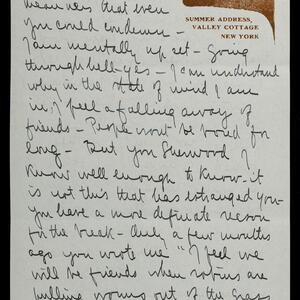 meanness that even
you could condemn –
SUMMER ADDRESS,
VALLEY COTTAGE
NEW YORK
I am mentally upset – going
through hell – yes – I can understand
why in the state of mind I am
in, I feel a falling away of
friends – People wont be bored for
long – But you Sherwood I
know well enough to know – it
is not this that has estranged you –
you have a more definite reason
for the break – Only a few months
ago you wrote me "I feel we
will be friends when robins are
pulling worms out of the grass